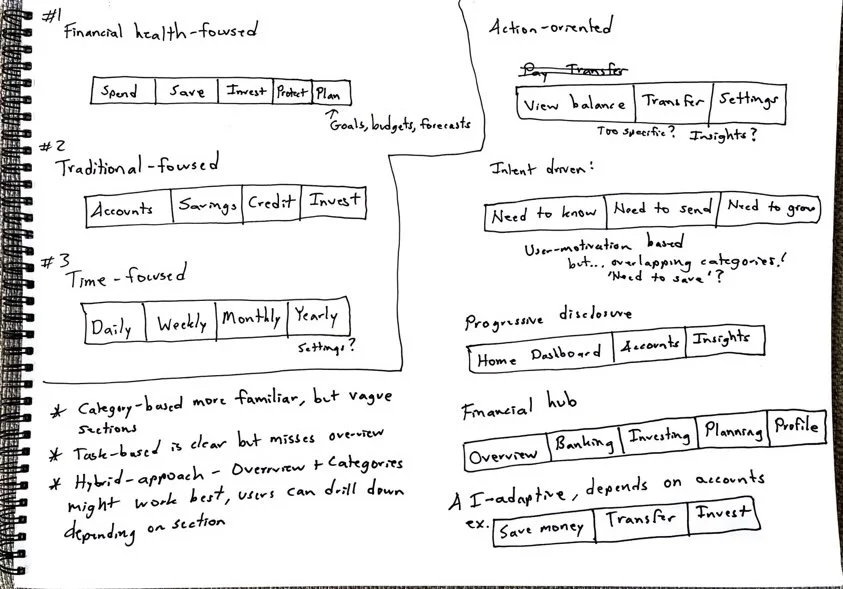 #1
Financial health-focused
Spend Save Invest Protect Plan
↑
Goals, budgets, forecasts
#2
Traditional-focused
Accounts Savings Credit Invest
#3
Time-focused
Daily Weekly Monthly Yearly
Settings?
* Category-based more familiar, but vague
sections
* Task-based is clear but misses overview
* Hybrid-approach - Overview + Categories
might work best, users can drill down
depending on section
Action-oriented
Pay Transfer
View balance Transfer Settings
Too specific? Insights?
Intent driven:
Need to know Need to send Need to grow
User-motivation based
but... overlapping categories!
'Need to save'?
Progressive disclosure
Home Dashboard Accounts Insights
Financial hub
Overview Banking Investing Planning Profile
AI-adaptive, depends on accounts
ex. Save money Transfer Invest